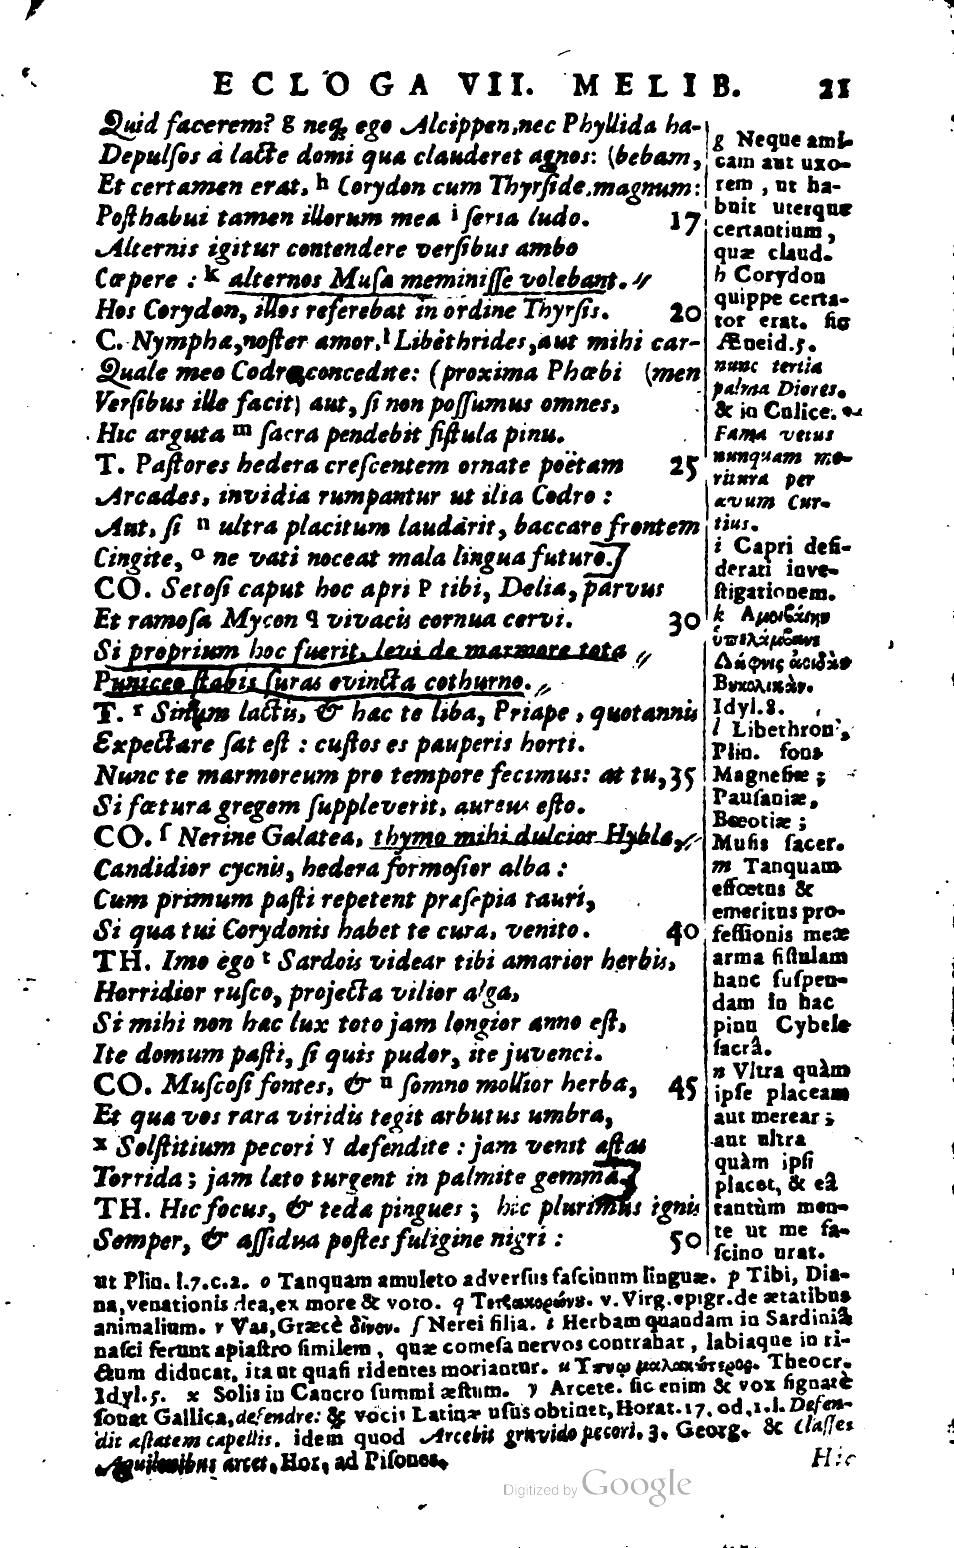 ECLOGA VII. MELIB. 21
Quid facerem? g neq; ego Alcippen, nec Phyllida ha-
Depulsos à lacte domi qua clauderet agnos: (bebam,
Et certamen erat, h Corydon cum Thyrside, magnum:
Posthabui tamen illorum mea i seria ludo. 17
Alternis igitur contendere versibus ambo
Cœpere : k alternos Musa meminisse volebant.
Hos Corydon, illos referebat in ordine Thyrsis. 20
C. Nympha, noster amor, l Libethrides, aut mihi car-
Quale meo Codro, concedite: (proxima Phœbi (men
Versibus ille facit) aut, si non possumus omnes,
Hic arguta m sacra pendebit fistula pinu.
T. Pastores hedera crescentem ornate poëtam 25
Arcades, invidia rumpantur ut ilia Codro :
Aut, si n ultra placitum laudârit, baccare frontem
Cingite, o ne vati noceat mala lingua futuro.
CO. Setosi caput hoc apri p tibi, Delia, parvus
Et ramosa Mycon q vivacis cornua cervi. 30
Si proprium hoc fuerit, levi de marmore tota
Puniceo stabis suras evincta cothurno.
T. r Sinum lactis, & hac te liba, Priape, quotannis
Expectare sat est : custos es pauperis horti.
Nunc te marmoreum pro tempore fecimus: at tu, 35
Si fœtura gregem suppleverit, aureus esto.
CO. s Nerine Galatea, thymo mihi dulcior Hybla,
Candidior cycnis, hedera formosior alba :
Cum primum pasti repetent præsepia tauri,
Si qua tui Corydonis habet te cura, venito. 40
TH. Imo ego t Sardois videar tibi amarior herbis,
Horridior rusco, projecta vilior alga,
Si mihi non hac lux toto jam longior anno est,
Ite domum pasti, si quis pudor, ite juvenci.
CO. Muscosi fontes, & u somno mollior herba, 45
Et qua vos rara viridis tegit arbutus umbra,
x Solstitium pecori y defendite : jam venit æstas
Torrida ; jam læto turgent in palmite gemmæ.
TH. Hic focus, & teda pingues ; hic plurimus ignis
Semper, & assidua postes fuligine nigri : 50
g Neque ami-
cam aut uxo-
rem, ut ha-
buit uterque
certantium,
quæ claud.
h Corydon
quippe certa-
tor erat. sic
Æneid.5.
nunc tertia
palma Diores.
& in Culice.
Fama vetus
nunquam mo-
ritura per
ævum Cur-
tius.
i Capri desi-
derati inve-
stigationem.
k Αμοιβαίην
ὑπελάμβανε
Δάφνις ἀοιδὰν
Βυκολικάν.
Idyl.8.
l Libethron,
Plin. fons
Magnesiæ ;
Pausaniæ,
Bœotiæ ;
Musis sacer.
m Tanquam
effœtus &
emeritus pro-
fessionis meæ
arma fistulam
hanc suspen-
dam in hac
pinu Cybele
sacrâ.
n Vltra quàm
ipse placeam
aut merear ;
aut ultra
quàm ipsi
placet, & eâ
tantùm men-
te ut me fa-
scino urat.
ut Plin. l.7.c.2. o Tanquam amuleto adversus fascinum linguæ. p Tibi, Dia-
na, venationis dea, ex more & voto. q Τετρακορώνε. v. Virg. epigr. de ætatibus
animalium. r Vas, Græcè δῖνον. s Nerei filia. t Herbam quandam in Sardiniâ
nasci ferunt apiastro similem, quæ comesa nervos contrahat, labiaque in ri-
ctum diducat, ita ut quasi ridentes moriantur. u Υπνω μαλακώτερος. Theocr.
Idyl.5. x Solis in Cancro summi æstum. y Arcete. sic enim & vox signatè
sonat Gallica, defendre: & vocis Latinæ usus obtinet, Horat. 17. od. 1.l. Defen-
dit æstatem capellis. idem quod Arcebis gravido pecori. 3. Georg. & Classes
Aquilonibus arcet, Hor. ad Pisones.
Hic
Digitized by Google